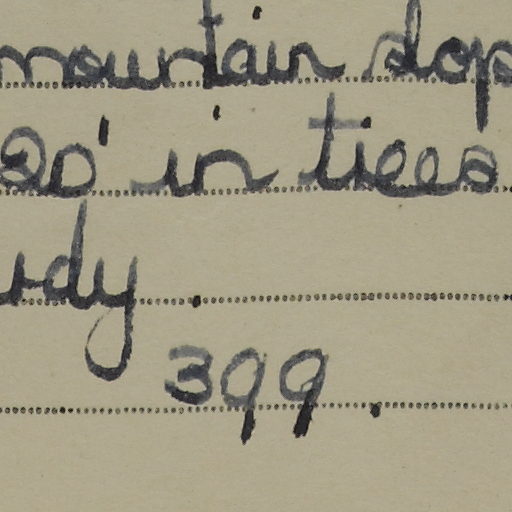 mountain slop
20' in trees
dy.
399.